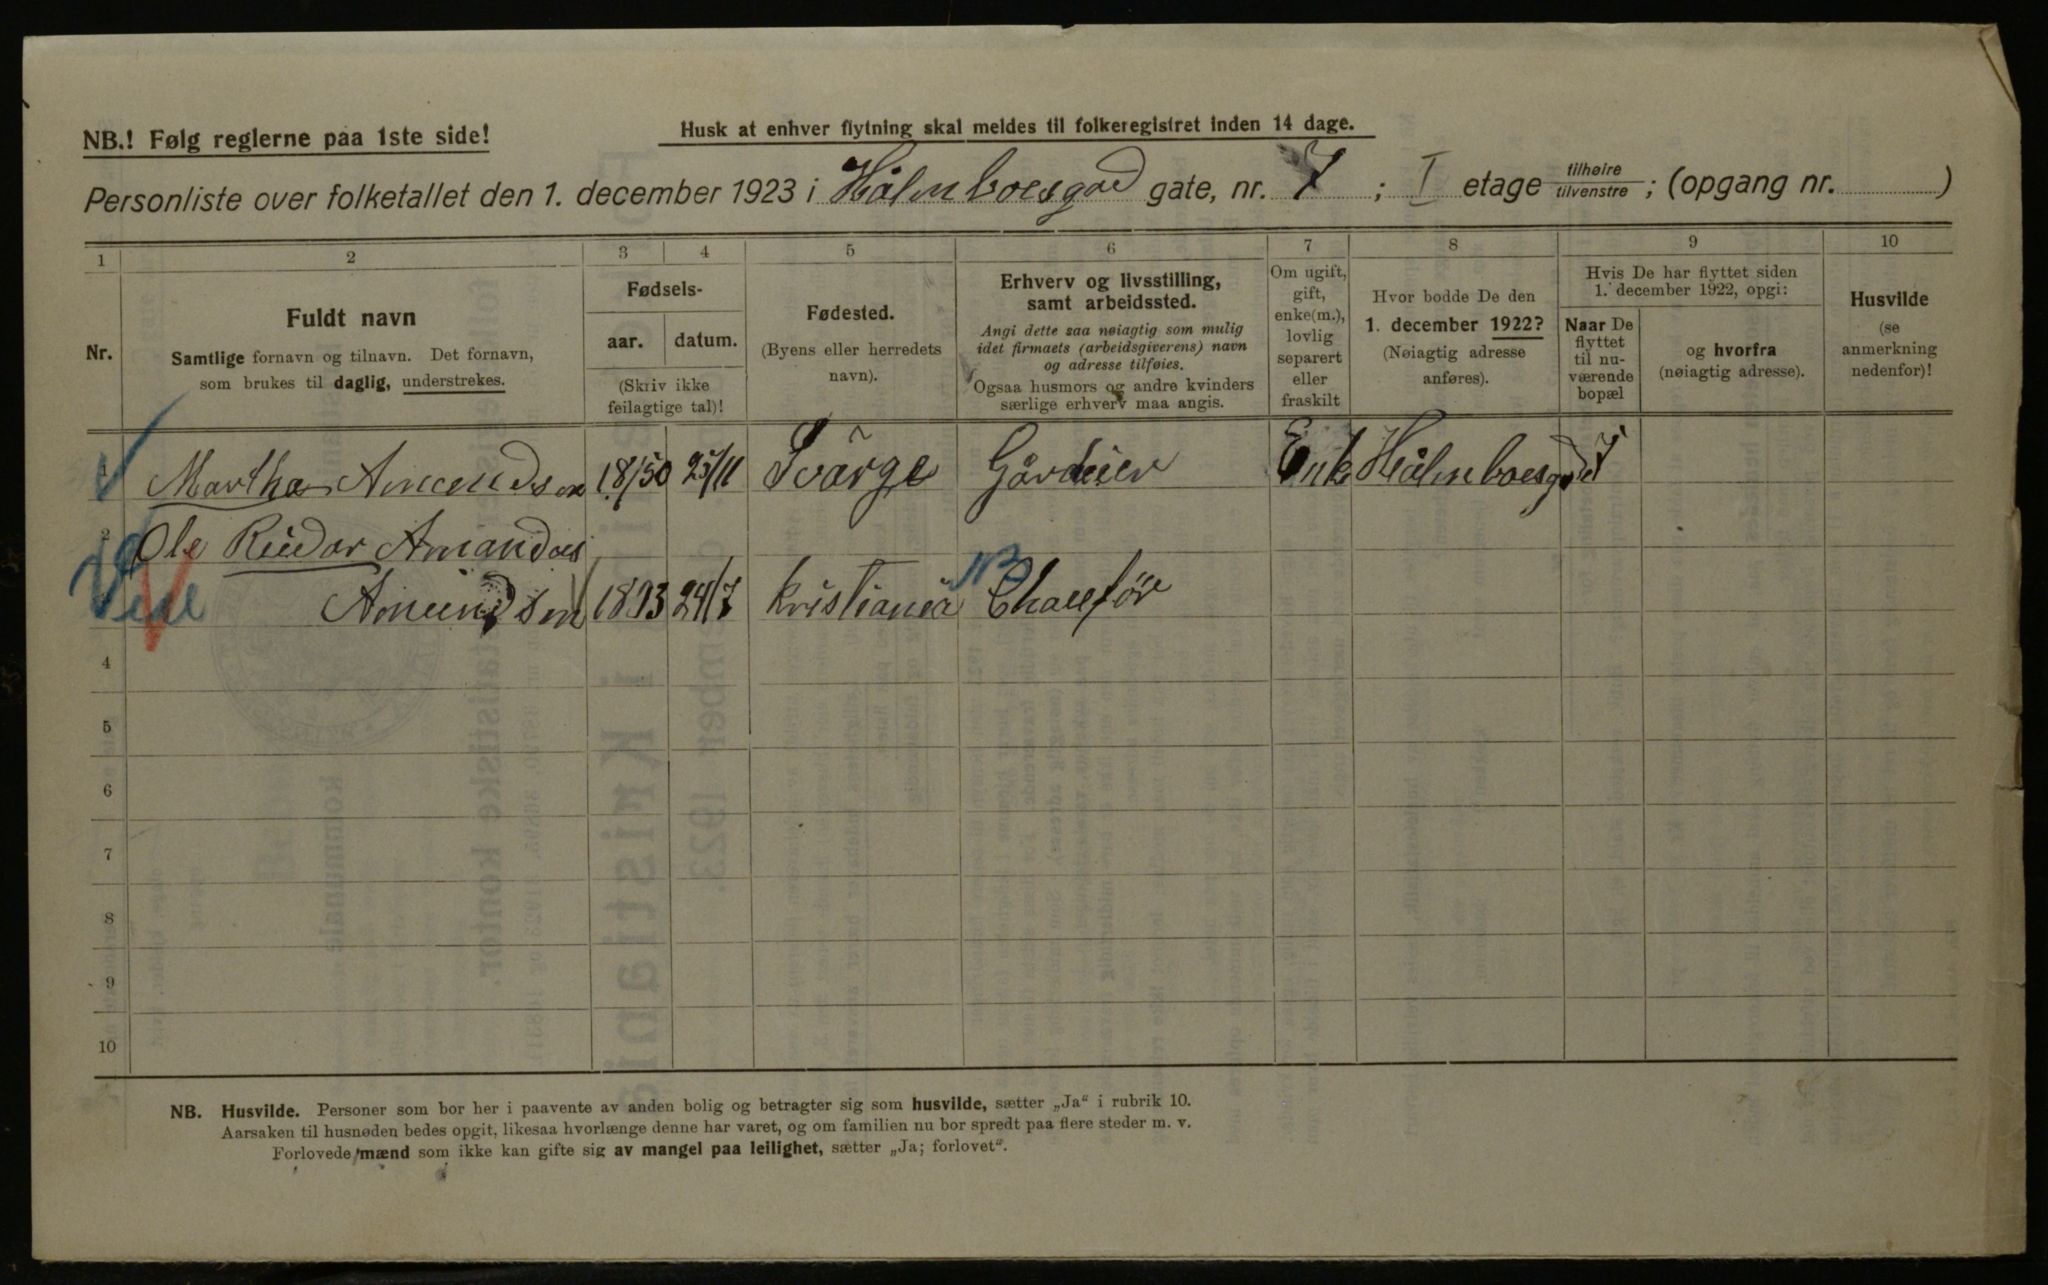 NB.! Følg reglerne paa 1ste side!
Husk at enhver flytning skal meldes til folkeregistret inden 14 dage.
Personliste over folketallet den 1. december 1923 i Hålmboesgad gate, nr. 7 ; I etage tilhøire/tilvenstre ; (opgang nr. )
1 2 3 4 5 6 7 8 9 10
Nr.
Fuldt navn
Samtlige fornavn og tilnavn. Det fornavn,
som brukes til daglig, understrekes.
Fødsels-
aar. datum.
(Skriv ikke
feilagtige tal)!
Fødested.
(Byens eller herredets
navn).
Erhverv og livsstilling,
samt arbeidssted.
Angi dette saa nøiagtig som mulig
idet firmaets (arbeidsgiverens) navn
og adresse tilføies.
Ogsaa husmors og andre kvinders
særlige erhverv maa angis.
Om ugift,
gift,
enke(m.),
lovlig
separert
eller
fraskilt
Hvor bodde De den
1. december 1922?
(Nøiagtig adresse
anføres).
Hvis De har flyttet siden
1. december 1922, opgi:
Naar De
flyttet
til nu-
værende
bopæl
og hvorfra
(nøiagtig adresse).
Husvilde
(se
anmerkning
nedenfor)!
1 Martha Amundsen 18/50 25/11 Gårdeier Enke Hålmboesgd 7
2 Ole Reidar Amandus
Amundsen 1893 24/7 Kristiania NB Chauffør
4
5
6
7
8
9
10
NB. Husvilde. Personer som bor her i paavente av anden bolig og betragter sig som husvilde, sætter „Ja“ i rubrik 10.
Aarsaken til husnøden bedes opgit, likesaa hvorlænge denne har varet, og om familien nu bor spredt paa flere steder m. v.
Forlovede mænd som ikke kan gifte sig av mangel paa leilighet, sætter „Ja; forlovet“.